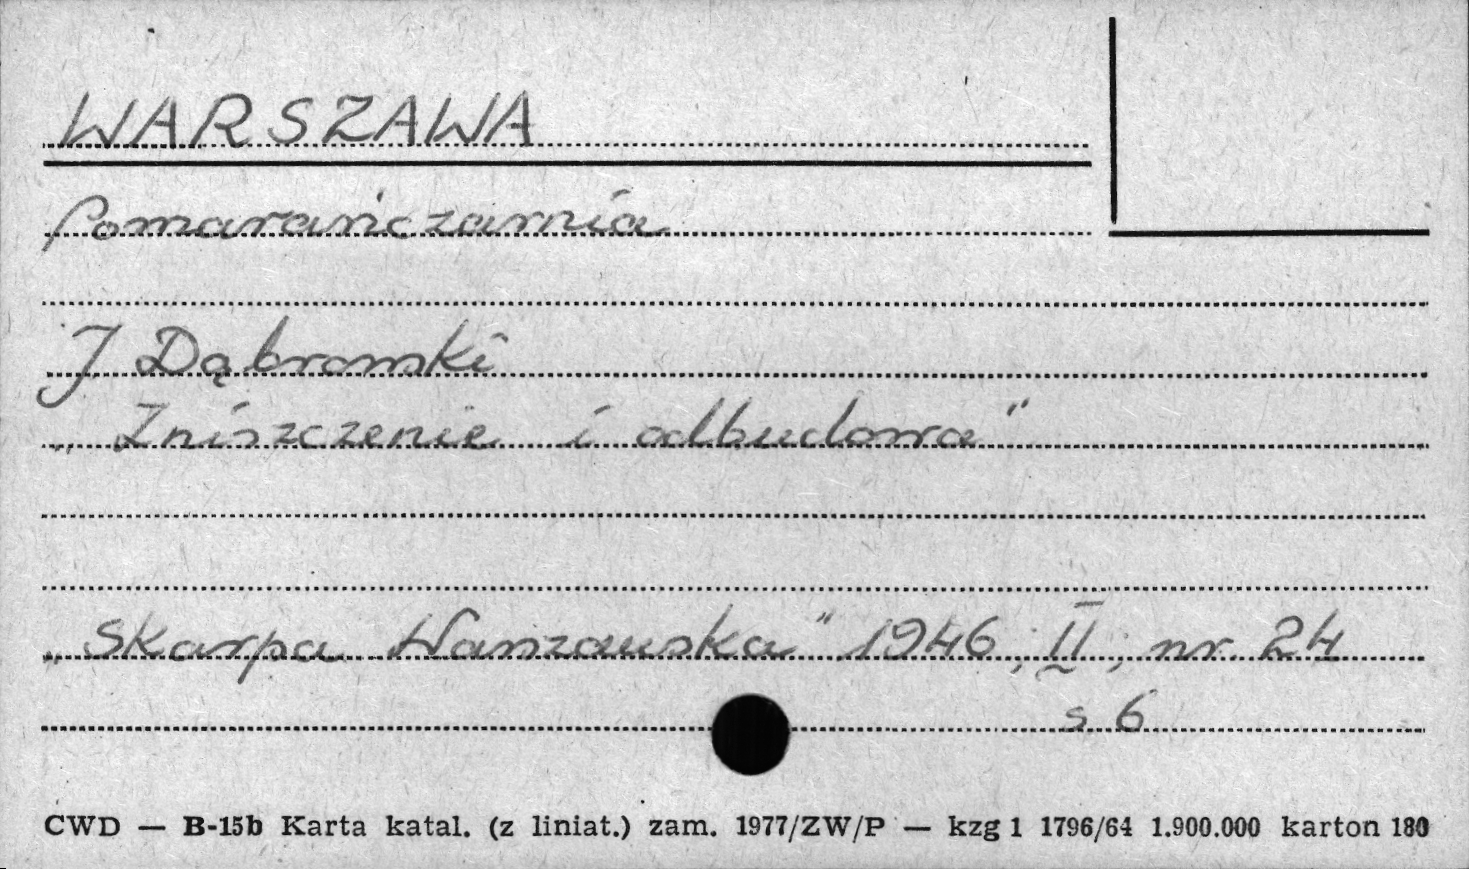 WARSZAWA
Pomarańczarnia
J Dąbrowski
„Zniszczenie i odbudowa"
„Skarpa Warszawska" 1946, II, nr. 24
s. 6
CWD — B-15b Karta katal. (z liniat.) zam. 1977/ZW/P — kzg 1 1796/64 1.900.000 karton 180